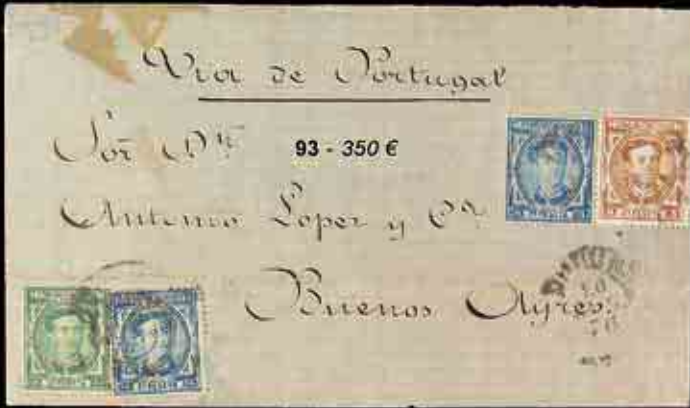 Via de Portugal
Sor Dn
93 - 350 €
Antonio Lopez y Ca
Buenos Ayres.